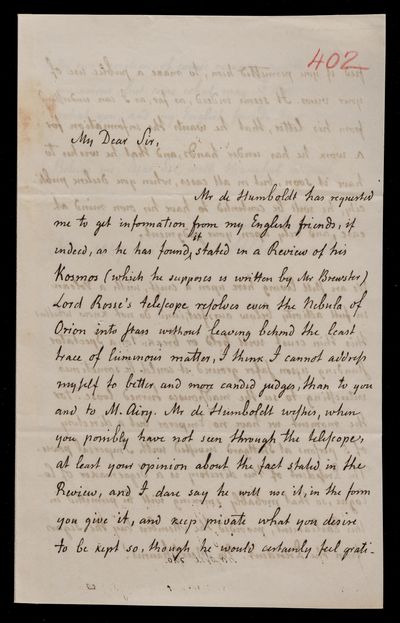 402
My Dear Sir,
Mr de Humboldt has requested
me to get information from my English friends, if
indeed, as he has found it stated in a Review of his
Kosmos (which he supposes is written by Mr Brewster)
Lord Rosse's telescope resolves even the Nebula of
Orion into stars without leaving behind the least
trace of luminous matter, I think I cannot address
myself to better and more candid judges, than to you
and to M. Airy. Mr de Humboldt wishes, when
you possibly have not seen through the telescope,
at least your opinion about the fact stated in the
Review, and I dare say he will use it, in the form
you give it, and keep private what you desire
to be kept so, though he would certainly feel grati-